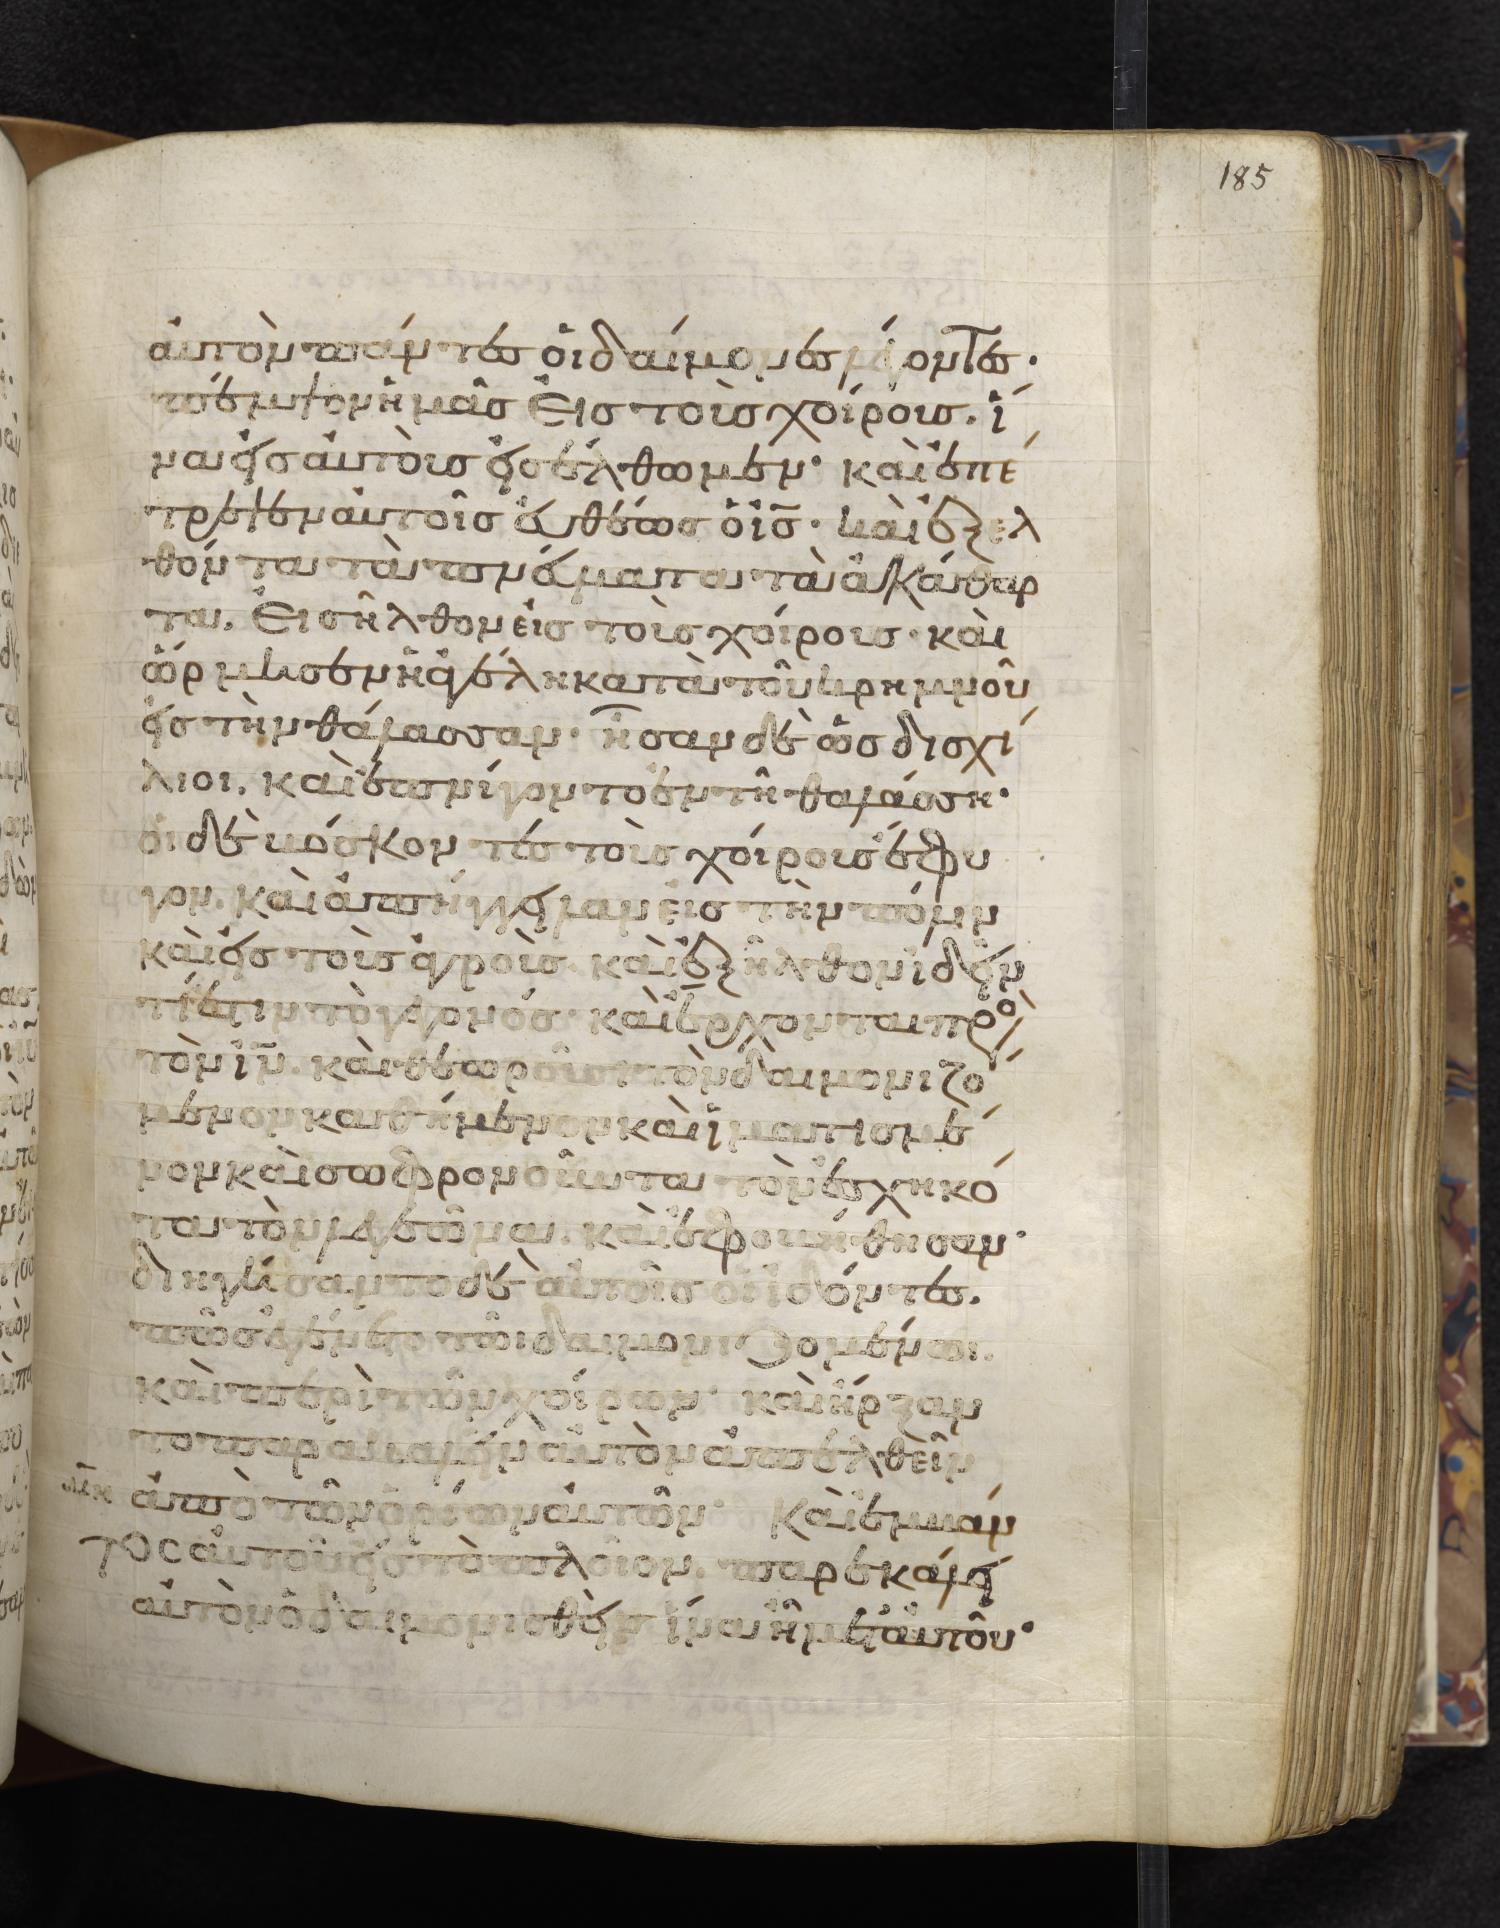 185
αὐτὸν πάντες οἱ δαίμονες λέγοντες·
πέμψον ἡμᾶς εἰς τοὺς χοίρους. ἵ
να εἰς αὐτοὺς εἰσέλθωμεν· καὶ ἐπέ
τρεψεν αὐτοῖς εὐθέως ὁ ἰς̄· καὶ ἐξελ
θόντα τὰ πνεύματα τὰ ἀκάθαρ
τα. εἰσῆλθον εἰς τοὺς χοίρους· καὶ
ὥρμησεν ἡ ἀγέλη κατὰ τοῦ κρημνοῦ
εἰς τὴν θάλασσαν· ἦσαν δὲ ὡς δισχί
λιοι. καὶ ἐπνίγοντο ἐν τῆ θαλάσση·
οἱ δὲ βόσκοντες τοὺς χοίρους ἔφυ
γον. καὶ ἀπήγγειλαν εἰς τὴν πόλιν
καὶ εἰς τοὺς ἀγρούς. καὶ ἐξῆλθον ἰδεῖν
τί ἐστιν τὸ γεγονός· καὶ ἔρχονται πρὸ
τὸν ἰν̄. καὶ θεωροῦσι τὸν δαιμονιζό
μενον καθήμενον καὶ ἱματισμέ
νον καὶ σωφρονοῦντα τὸν ἐσχηκό
τα τὸν λεγεῶνα. καὶ ἐφοβήθησαν·
διηγήσαντο δὲ αὐτοῖς οἱ ἰδόντες.
πῶς ἐγένετο τῶι δαιμονιζομένωι.
καὶ περὶ τῶν χοίρων· καὶ ἤρξαν
το παρακαλεῖν αὐτὸν ἀπελθεῖν
ἀπὸ τῶν ὁρίων αὐτῶν· Καὶ ἐμβάν
τος αὐτοῦ εἰς τὸ πλοῖον. παρεκάλει
αὐτὸν ὁ δαιμονισθεὶς ἵνα ἦ μετ' αὐτοῦ·